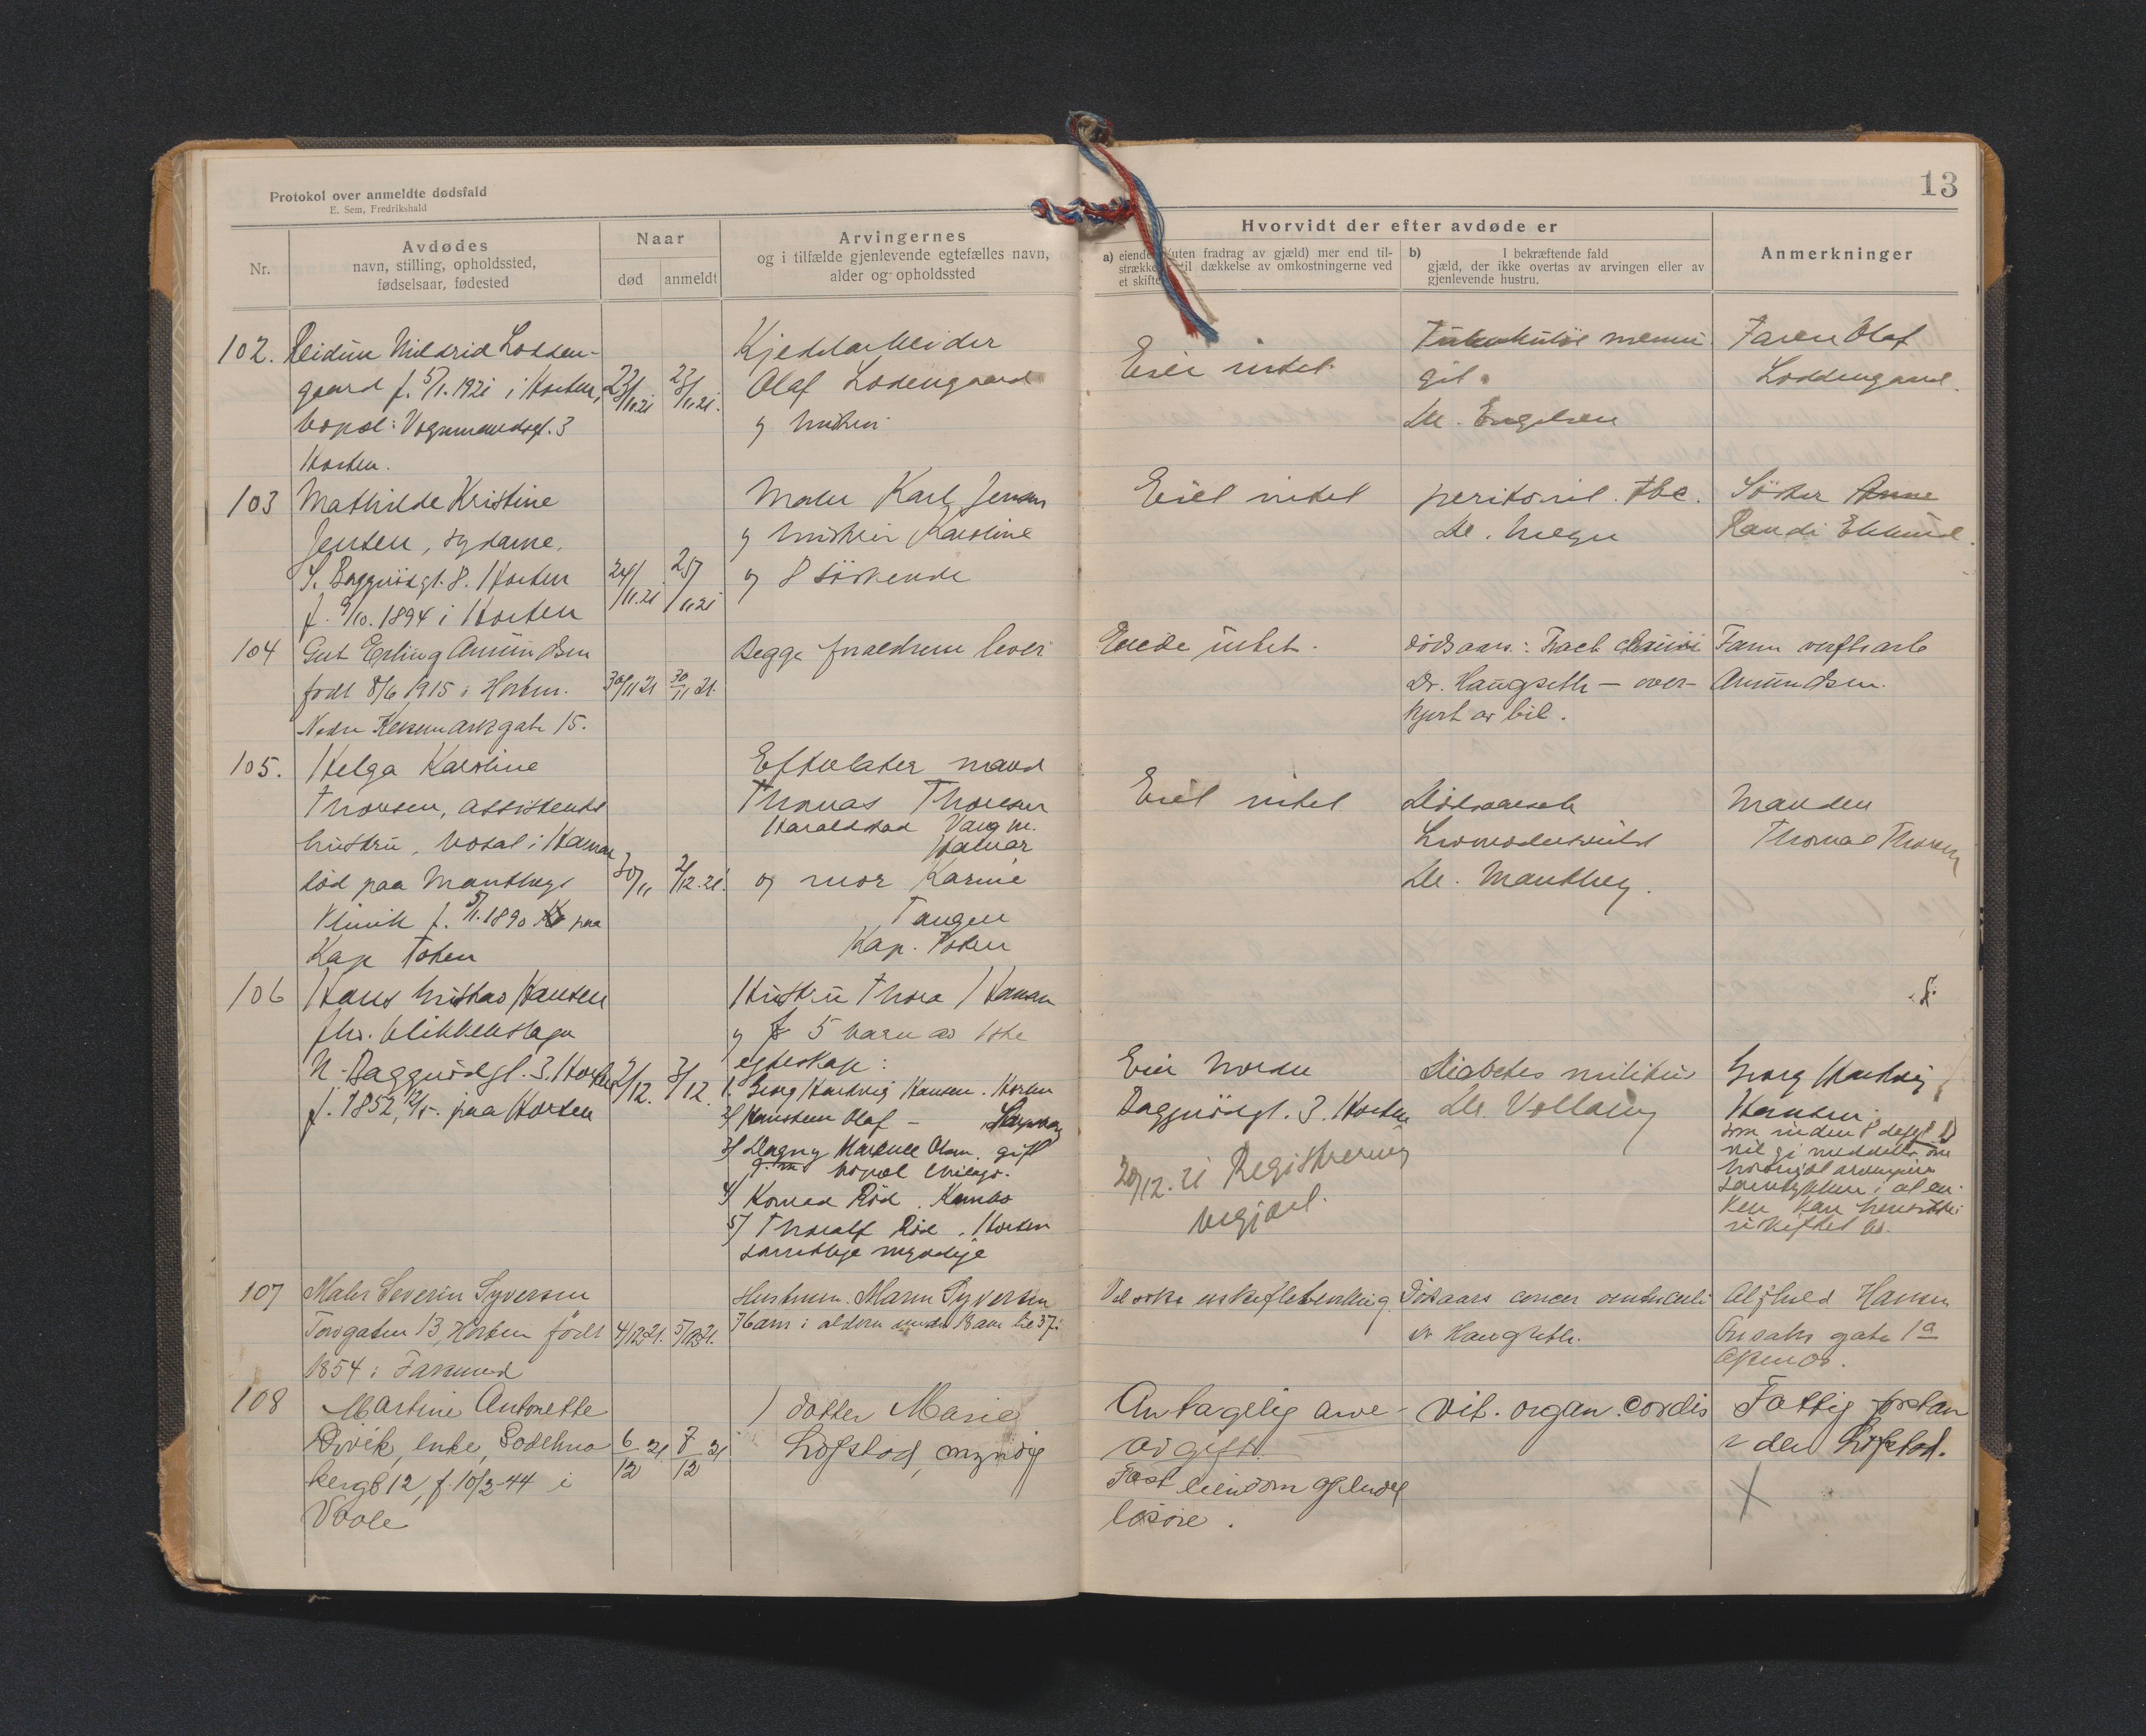 Protokol over anmeldte dødsfald
E. Sem, Fredrikshald
13
Nr.
Avdødes
navn, stilling, opholdssted,
fødselsaar, fødested
Naar
død
anmeldt
Arvingernes
og i tilfælde gjenlevende egtefælles navn,
alder og opholdssted
Hvorvidt der efter avdøde er
a) eiende (uten fradrag av gjæld) mer end til-
til dækkelse av omkostningerne ved
et skifte
b) I bekræftende fald
gjæld, der ikke overtas av arvingen eller av
gjenlevende hustru.
Anmerkninger
102. Reidun Mildrid Lodden-
gaard f. 5/1.1921 i Horten,
bopæl: Vognmandsgt. 3
Horten.
22/11.21
23/11.21.
Kjedelarbeider
Olaf Lodengaard
og hustru
Eier intet
Tuberkuløs menin
git.
Dr. Engelsen
Faren Olaf
Loddengaard.
103 Mathilde Kristine
Jensen, sydame,
S. Baggerødgt. 8. Horten
f. 9/10. 1894 i Horten
24/11.21
25/11.21
Maler Karl Jensen
og hustru Karoline
og 8 søskende
Eiet intet
peritonit. tbc.
Dr.
Søster Anne
Randi Eklund.
104 Gut Erling Amundsen
født 8/6 1915 i Horten.
Nedre Keisemarkgate 15.
30/11 21
30/11 21.
Begge forældrene lever
Eiede intet.
Dødsaars.: Fract. cranii
Dr. Haugseth — over-
kjørt av bil.
Faren verftsarb
Amundsen.
105. Helga Karoline
Thoresen, assistents
hustru, bosat i Hamar
død paa Mantheys
klinik f. 5/1.1890 paa
Kap Toten
30/11
2/12.21.
Efterlater mand
Thomas Thoresen
Hamar
og mor Karine
Tangen
Kap. Toten
Eiet intet
Dødsaarsak
Dr. Manthey.
Manden
Thomas Thoresen
106 Hans Hansen
fhv. blikkenslager
N. Baggerødgt. 3. Horten
f. 1852, 12/5. paa Horten
2/12.
3/12.
Hustru Thora Hansen
og 5 barn av 1ste
egteskap:
1. Georg Hartvig Hansen. Horten
2/ Olaf —
3/ Dagny Olsen. gift
bopæl Chicago.
4/ Konrad Rød.
5/ Thoralf Rød. Horten
samtlige myndige
Eier Nordre
Baggerødgt. 3. Horten
20/12.21 Registrering
begjært.
Diabetes militus
Dr. Vollan
Georg Hartvig
Hansen
som inden
vil gi meddelelse om
hvorvidt arvingene
samtykker i at en-
ken kan hensitte i
uskiftet bo.
107 Maler Severin Syversen
Torvgaten 13, Horten født
1854 i Farsund
4/12 21.
5/12 21.
Hustruen Maren Syversen
Vil søke uskiftebevilling
Dødsaars cancer ventriculi
Dr Haugseth.
Alfhild Hansen
gate 1a
108 Martine Antonette
enke,
12, f. 10/3-44 i
Vaale
6/12 21
7/12 21
1 datter Marie
Lofstad, myndig
Antagelig arve-
avgift.
Fast eiendom og
løsøre.
vit. organ. cordis
Fattig forstan
der Lofstad.
X